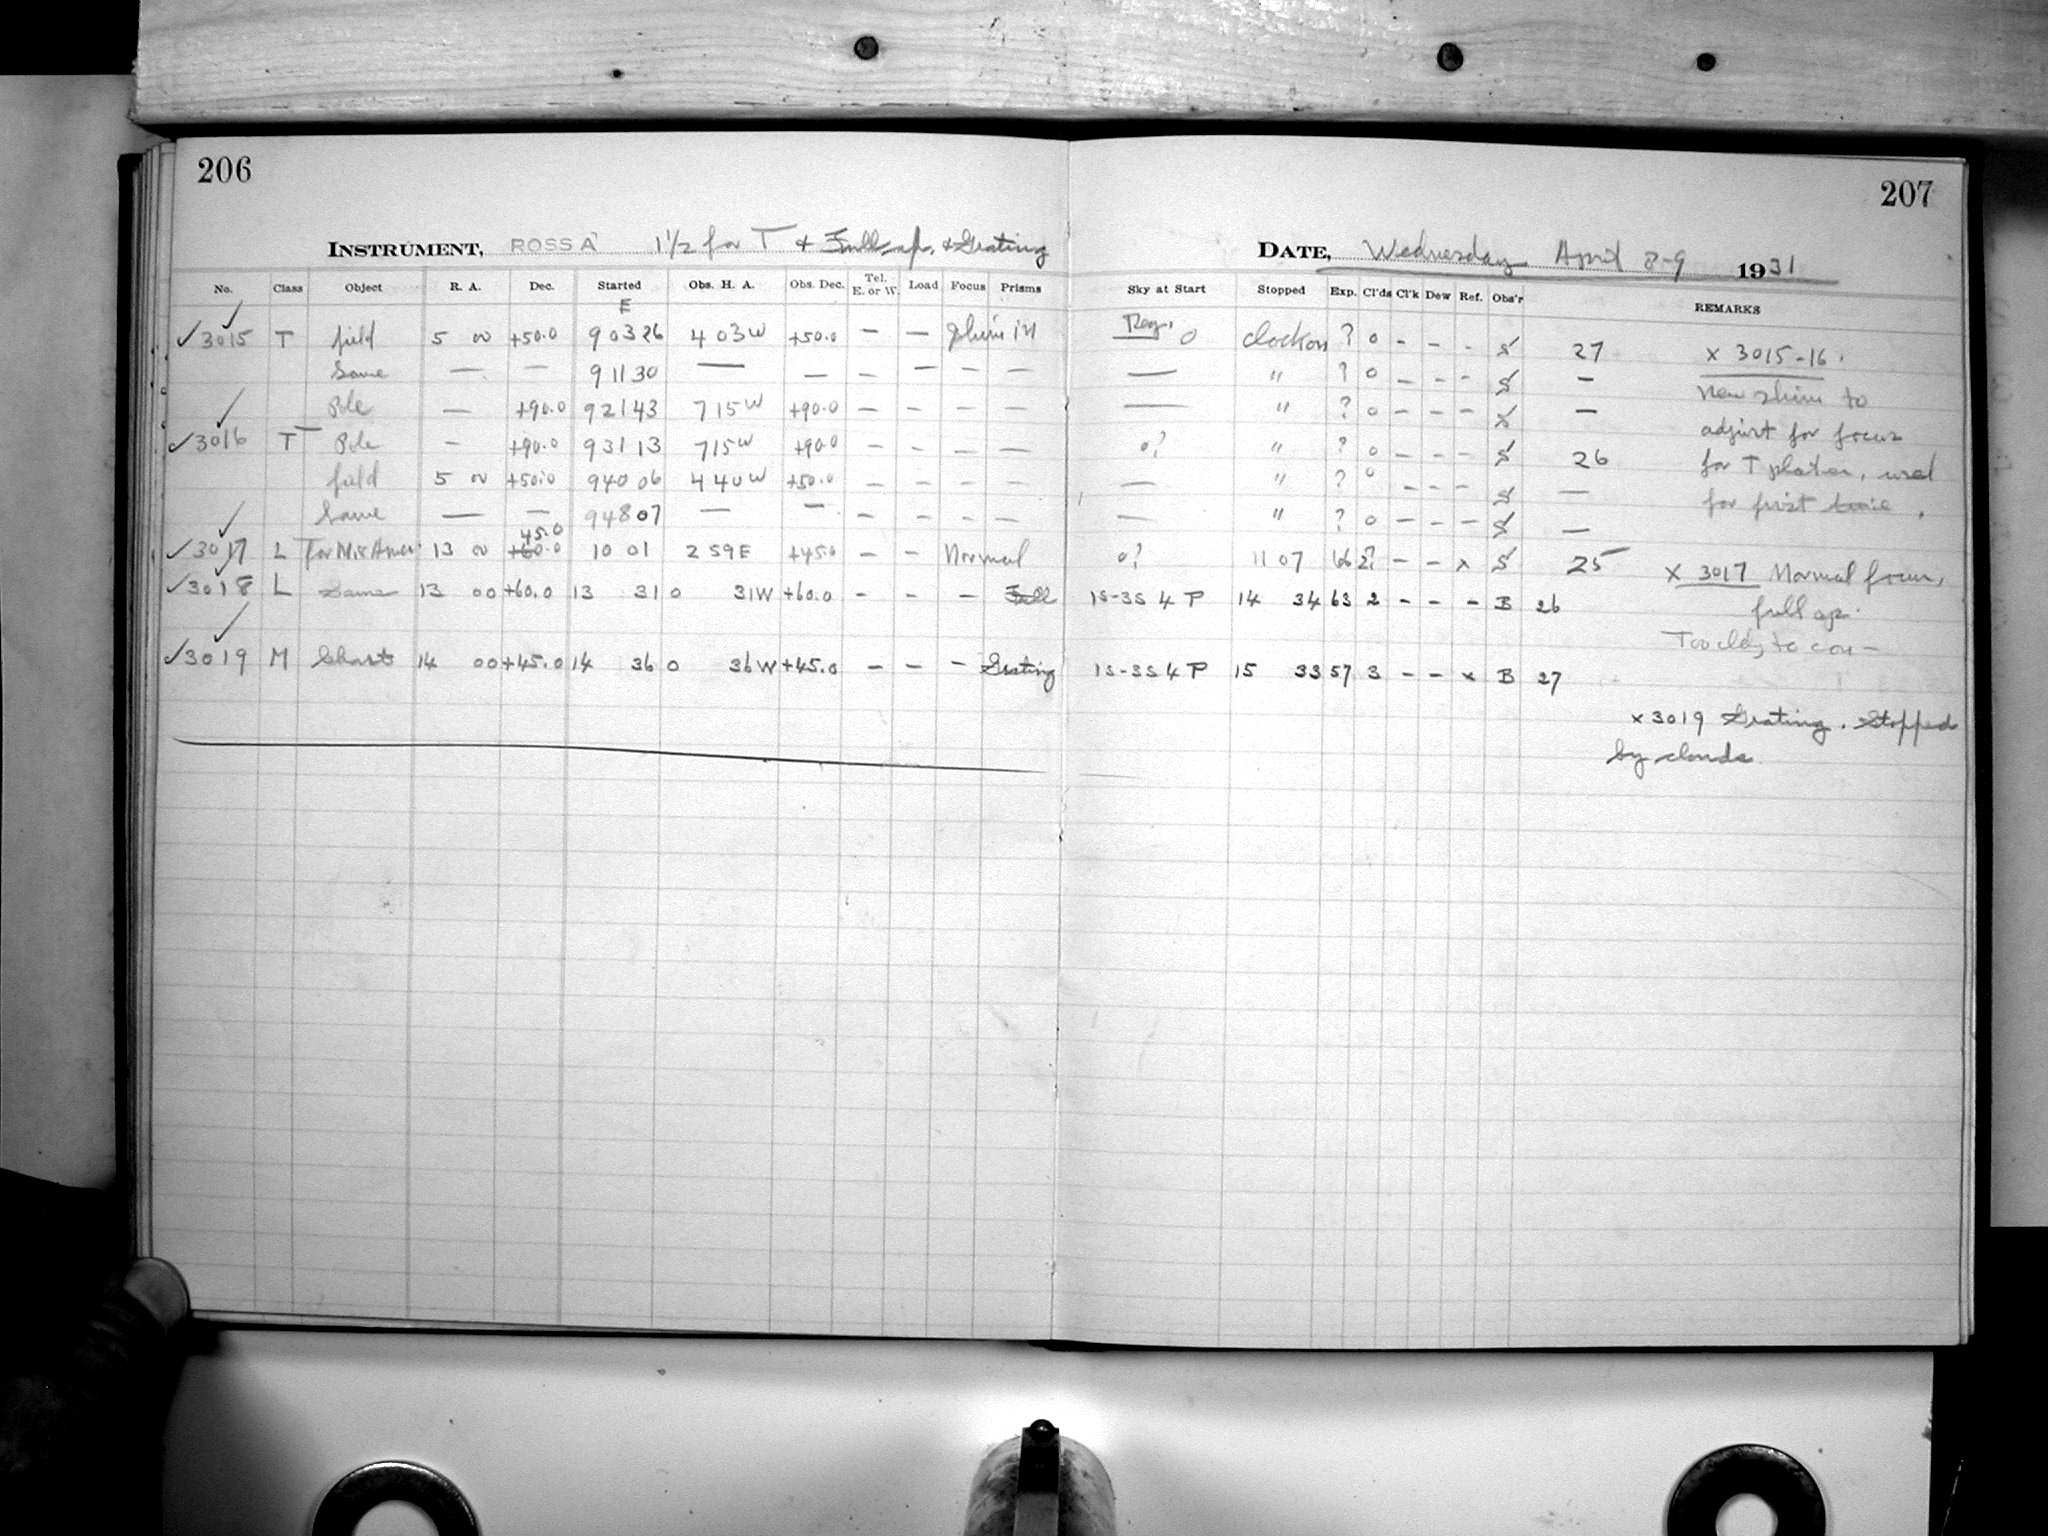 206
207
INSTRUMENT, ROSS A 1 1/2 for T & Full ap. & Grating
DATE, Wednesday April 8-9 1931
No. Class Object R. A. Dec. Started Obs. H. A. Obs. Dec. Tel. E. or W. Load Focus Prisms Sky at Start Stopped Exp. Cl'ds Cl'k Dew Ref. Obs'r REMARKS
E
✓3015 T field 5 00 +50.0 9 03 26 4 03W +50.0 — — shim in Reg. 0 clock on ? 0 - - - S 27 x 3015-16.
Same — — 9 11 30 — — — — — — — " ? 0 - - - S —
Pole — +90.0 9 21 43 7 15W +90.0 — — — — — " ? 0 - - - S —
new shim to
✓3016 T Pole — +90.0 9 31 13 7 15W +90.0 — — — — 0? " ? 0 - - - S 26 adjust for focus
field 5 00 +50.0 9 40 06 4 40W +50.0 — — — — — " ? 0 - - - S — for T plates, used
Same — — 9 48 07 — — — — — — — " ? 0 - - - S — for first time.
45.0
✓3017 L For Mis Ames 13 00 +60.0 10 01 2 59E +45.0 — — Normal 0? 11 07 66 2? - - x S 25 x 3017 Normal focus,
✓3018 L Same 13 00 +60.0 13 31 0 31W +60.0 - - - Full 1S-3S 4 P 14 34 63 2 - - - B 26 full ap.
Too cldy to con-
✓3019 M Chart 14 00 +45.0 14 36 0 36W +45.0 - - - Grating 1S-3S 4 P 15 33 57 3 - - x B 27
x 3019 Grating. Stopped
by clouds